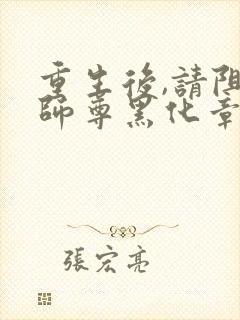 重生後,請阻
師尊黑化章
張宏亮